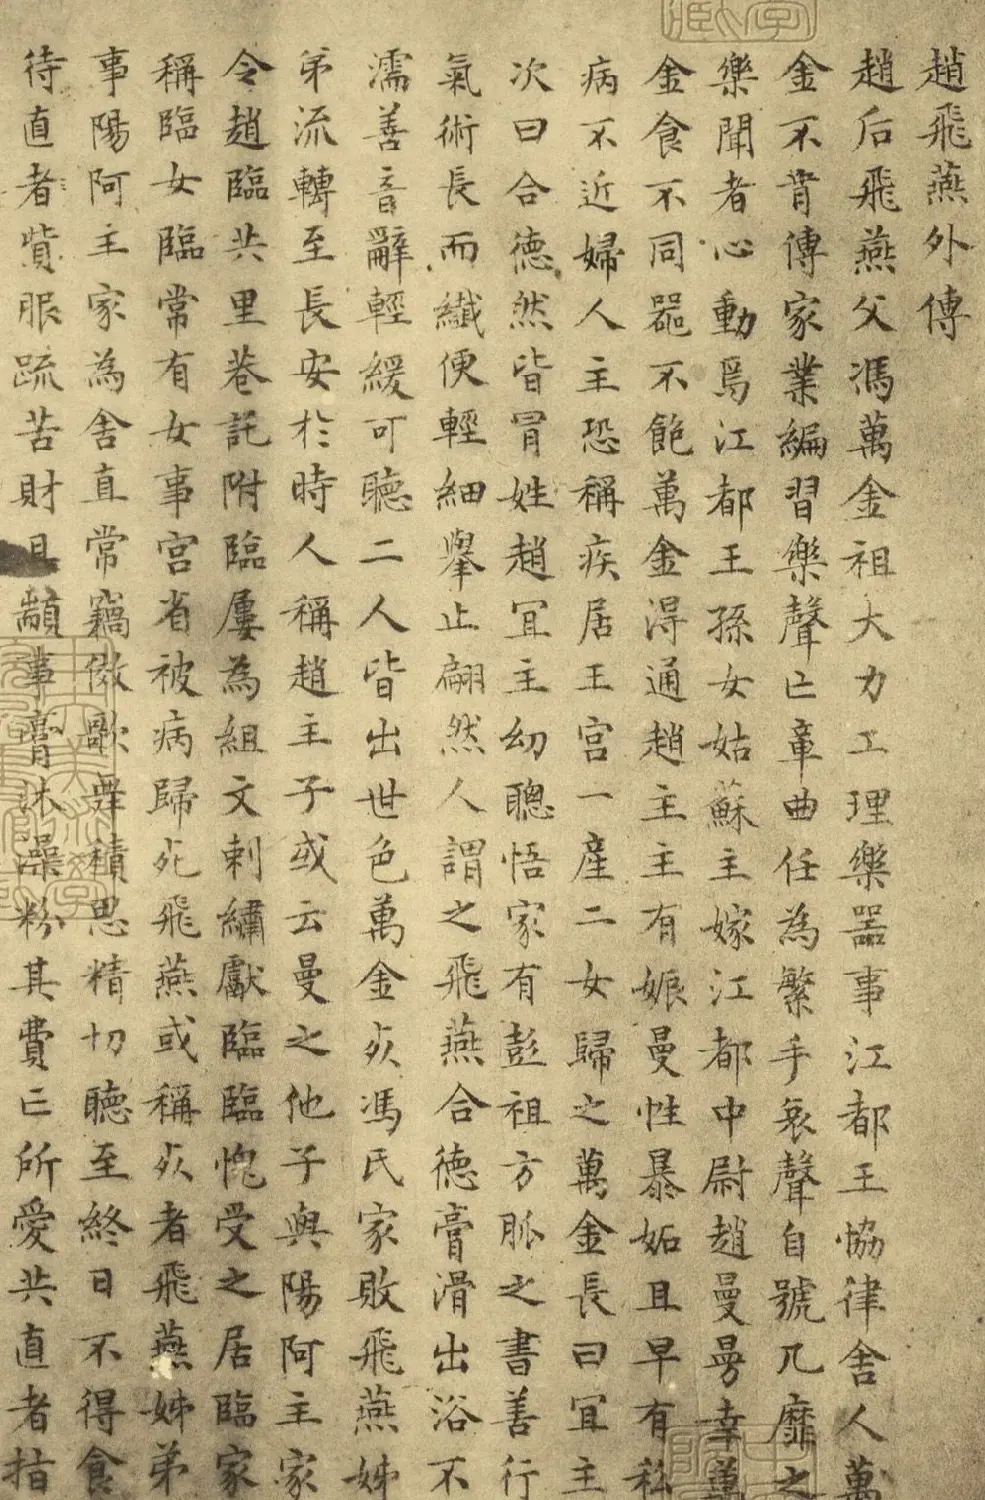 趙飛燕外傳
趙后飛燕父馮萬金祖大力工理樂器事江都王協律舍人萬
金不肯傳家業編習樂聲亡章曲任為繁手哀聲自號凡靡之
樂聞者心動焉江都王孫女姑蘇主嫁江都中尉趙曼曼幸萬
金食不同器不飽萬金得通趙主主有娠曼性暴妬且早有私
病不近婦人主恐稱疾居王宮一產二女歸之萬金長曰宜主
次曰合德然皆冐姓趙宜主幼聰悟家有彭祖方脈之書善行
氣術長而纖便輕細舉止翩然人謂之飛燕合德膏滑出浴不
濡善音辭輕緩可聽二人皆出世色萬金死馮氏家敗飛燕姊
弟流轉至長安於時人稱趙主子或云曼之他子與陽阿主家
令趙臨共里巷託附臨屢為組文刺繡獻臨臨愧受之居臨家
稱臨女臨常有女事宮省被病歸死飛燕或稱死者飛燕姊弟
事陽阿主家為舍直常竊倣歌舞積思精切聽至終日不得食
待直者貲服疏苦財且顓事膏沐澡粉其費亡所愛共直者指